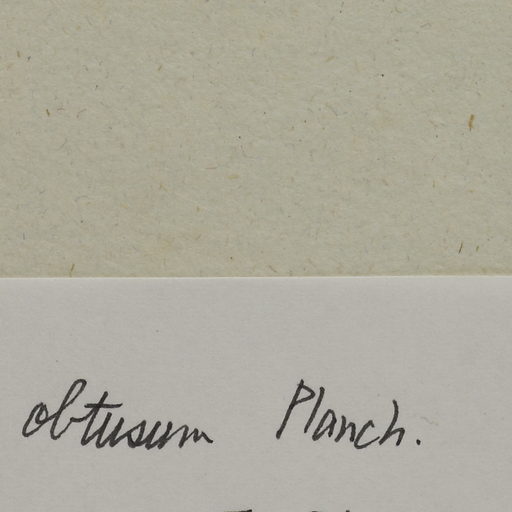 obtusum Planch.